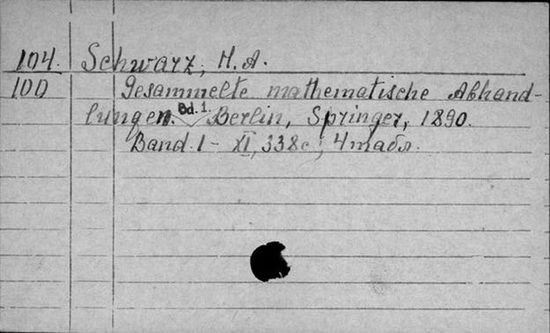 104. Schwarz, H. A.
100 Gesammelte mathematische Abhand-
lungen. Bd. 1. Berlin, Springer, 1890.
Band 1 - XI, 338 с., 4 табл.